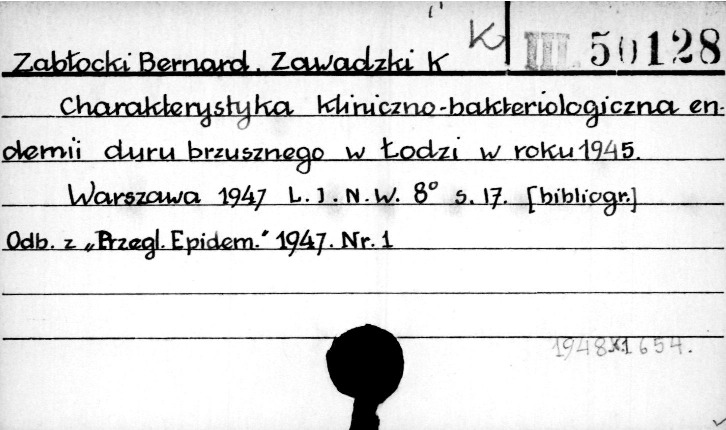 K III 50128
Zabłocki Bernard. Zawadzki K
Charakterystyka kliniczno-bakteriologiczna en-
demii duru brzusznego w Łodzi w roku 1945.
Warszawa 1947 L.I.N.W. 8° s. 17. [bibliogr.]
Odb. z „Przegl. Epidem.“ 1947. Nr. 1